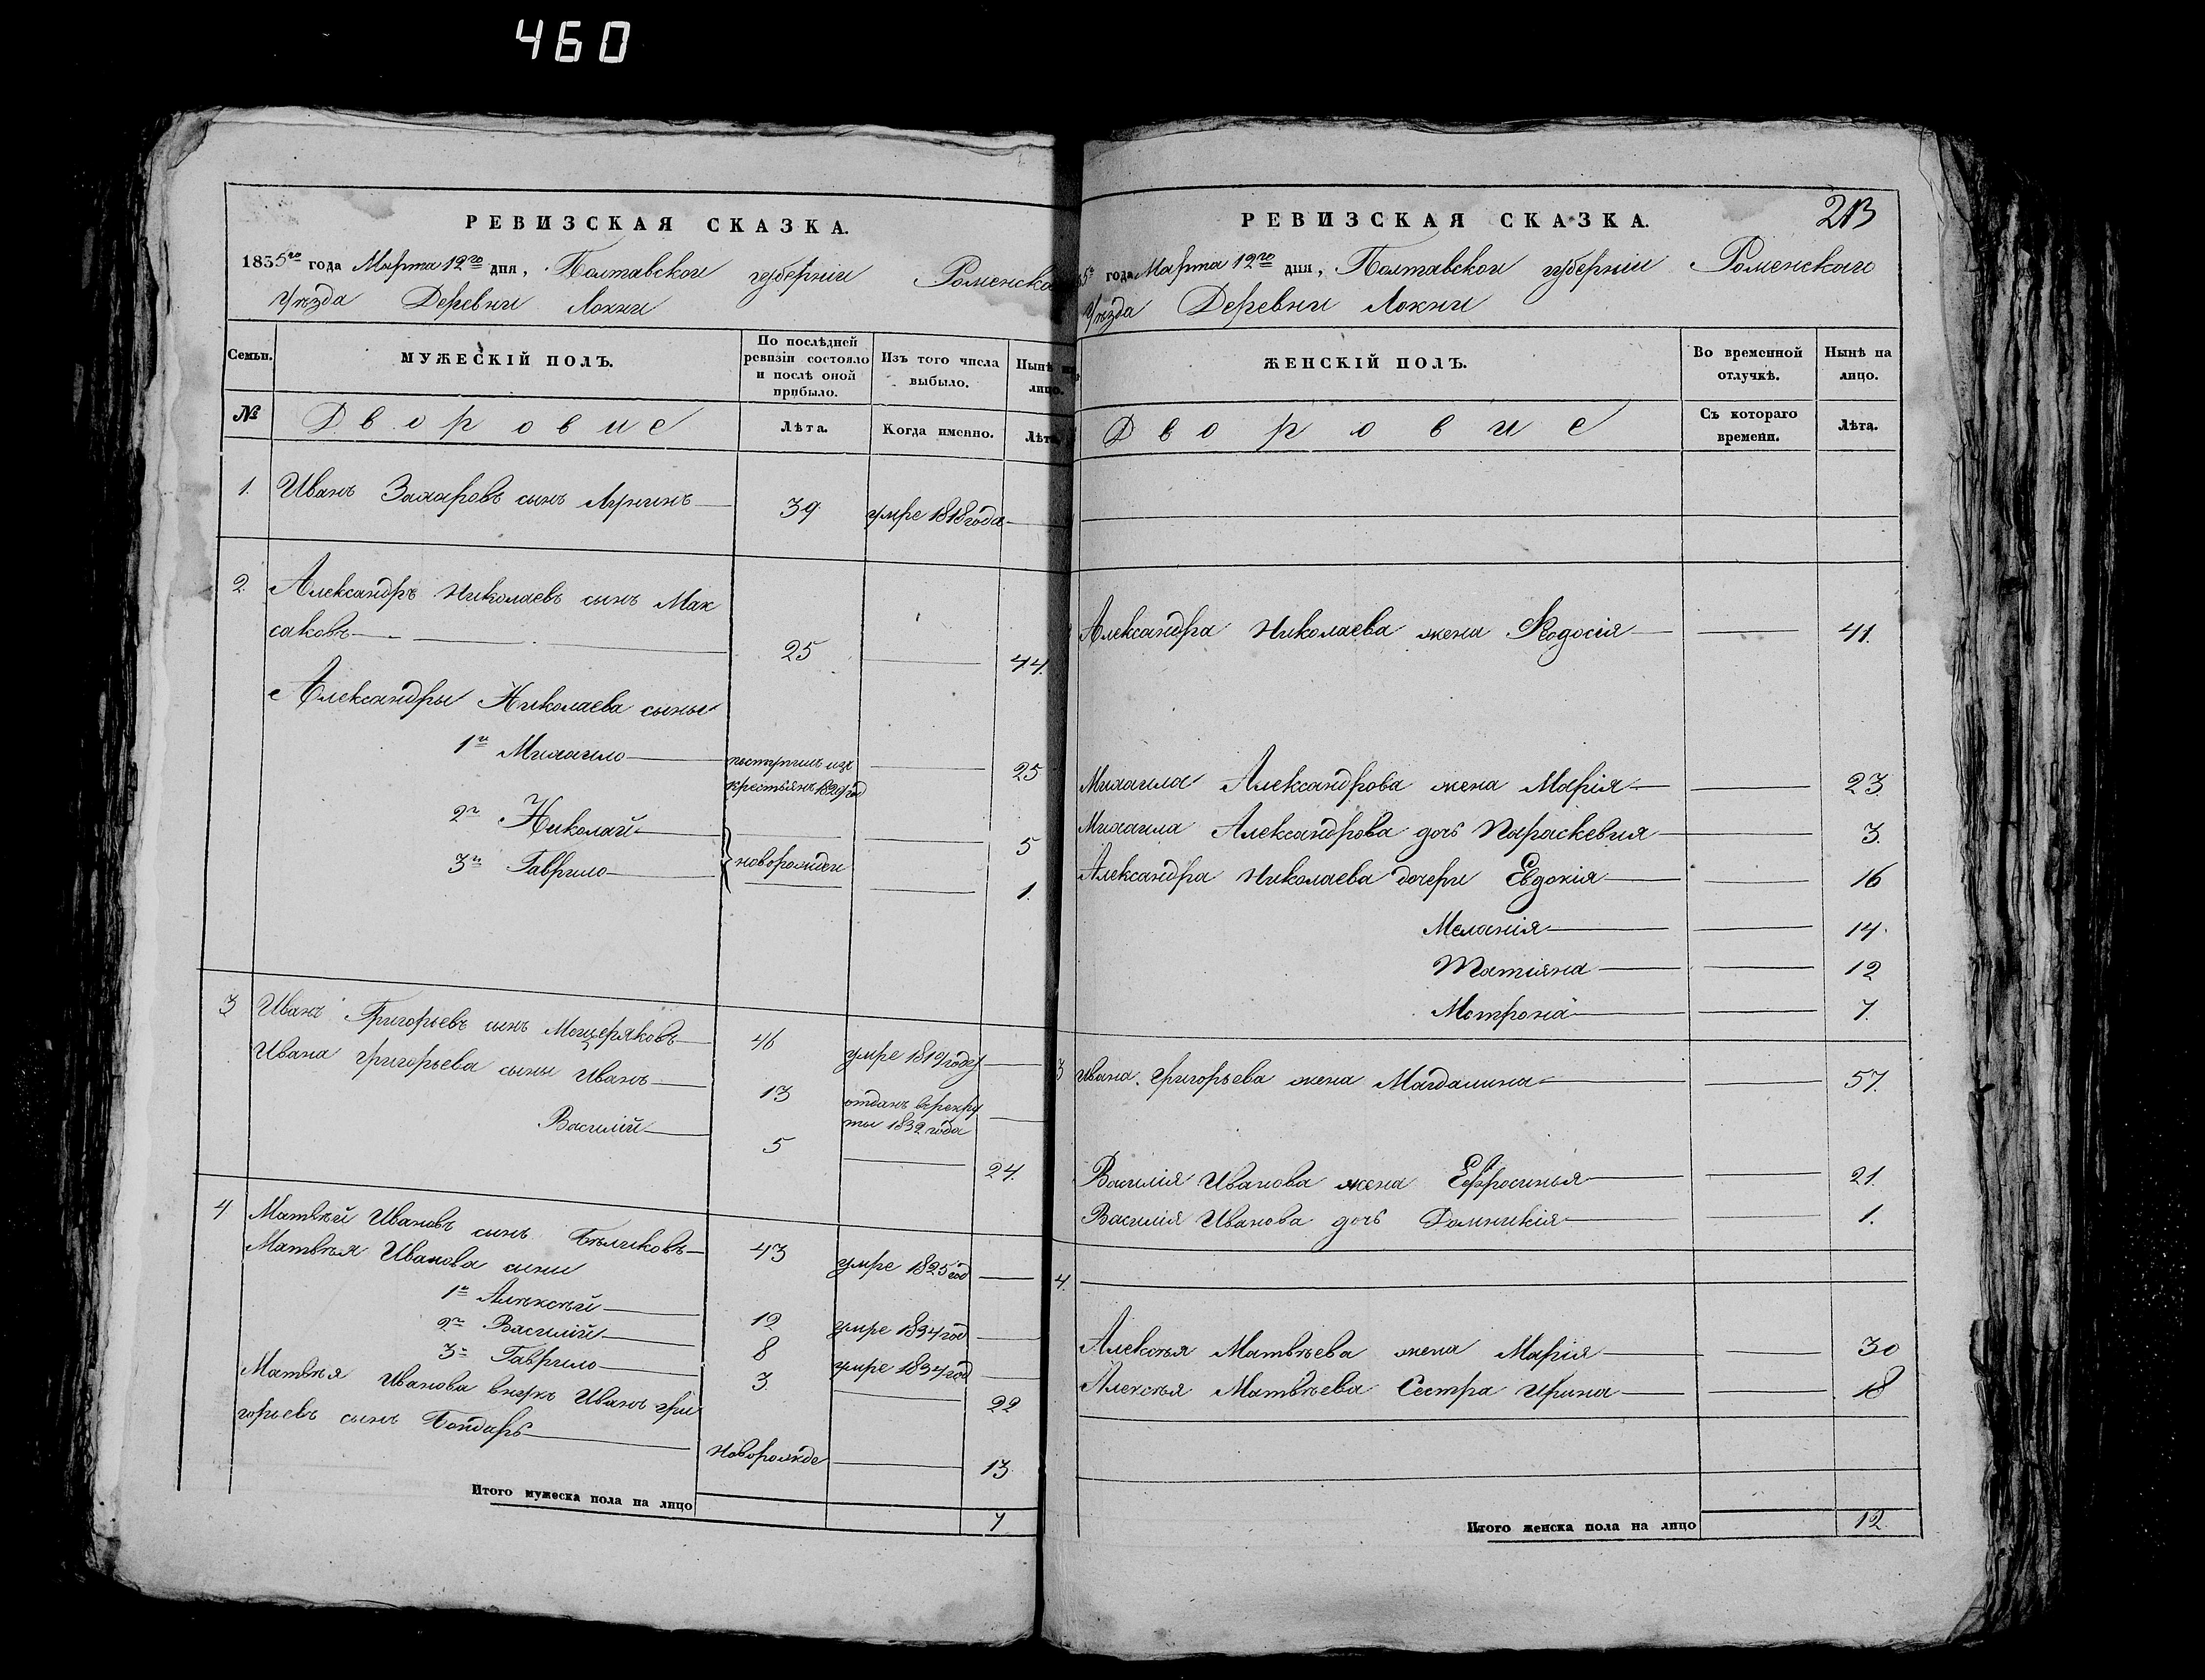 460
РЕВИЗСКАЯ СКАЗКА.
1835го года Марта 12го дня, Полтавской губерніи Роменско
Уѣзда Деревни Локни
Семьи. МУЖЕСКІЙ ПОЛЪ. По послѣдней ревизіи состояло и послѣ оной прибыло. Изъ того числа выбыло. Нынѣ на лицо.
№ Дворовые Лѣта. Когда именно. Лѣта
1. Иванъ Захаровъ сынъ Лунинъ 39 умре 1818 года
2. Александръ Николаевъ сынъ Мак
саковъ 25 44.
Александры Николаева сыны
1й Михаило поступилъ изъ крестьянъ 1829 год 25
2й Николай 5
3й Гаврило новорожден 1.
3 Иванъ Григорьевъ сынъ Мещеряковъ 46 умре 1819 году
Ивана Григорьева сыны Иванъ 13 отданъ в рекру
ты 1832 года
Василій 5 24.
4 Матвѣй Ивановъ сынъ Бѣликовъ 43 умре 1825 год
Матвѣя Иванова сыны
1й Алѣксѣй 12 умре 1834 год
2й Василій 8 умре 1834 год
3й Гаврило 3. 22
Матвѣя Иванова внукъ Иванъ Гри
горьевъ сынъ Бондарь Новорожде 13
Итого мужеска пола на лицо 7
РЕВИЗСКАЯ СКАЗКА. 213
35го года Марта 12го дня, Полтавской губерніи Роменскаго
Уѣзда Деревни Локни
ЖЕНСКІЙ ПОЛЪ. Во временной отлучкѣ. Нынѣ на лицо.
Дворовые Съ котораго времени. Лѣта.
Александра Николаева жена Ѳеодосія 41.
Михаила Александрова жена Марія 23.
Михаила Александрова дочь Параскевия 3.
Александра Николаева дочери Евдокія 16
Меланія 14.
Татіяна 12
Мотрона 7.
3 Ивана Григорьева жена Магдалина 57.
Василія Иванова жена Ефросинья 21.
Василія Иванова дочь Домникія 1.
4.
Алексѣя Матвѣева жена Марія 30
Алексѣя Матвѣева Сестра Ирина 18
Итого женска пола на лицо 12